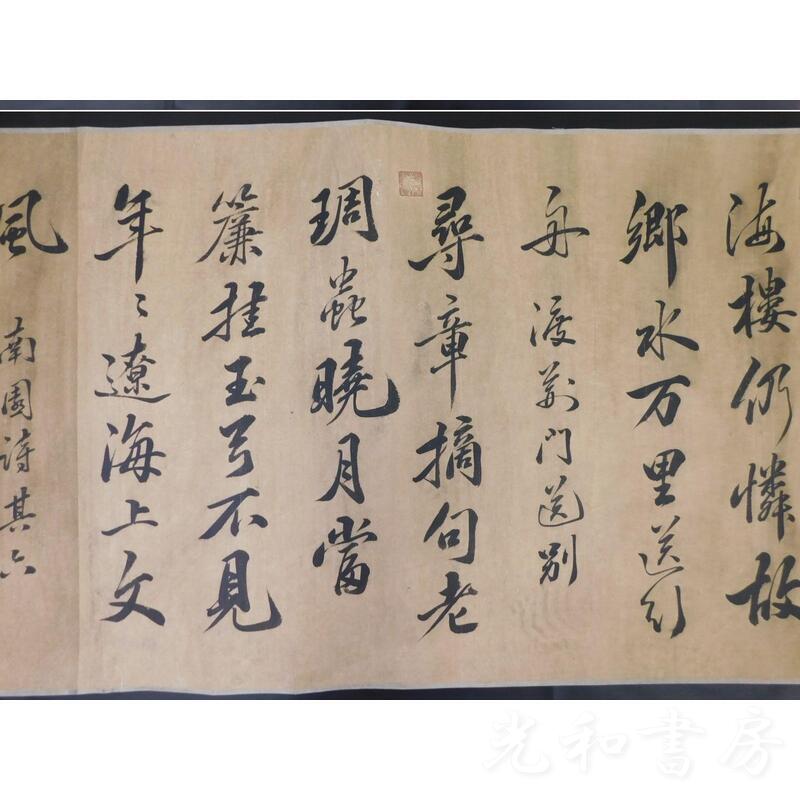 海樓仍憐故
鄉水万里送行
舟 渡荆門送别
尋章摘句老
琱蟲曉月當
簾挂玉弓不見
年〻遼海上文
風 南園詩其六
光和書房